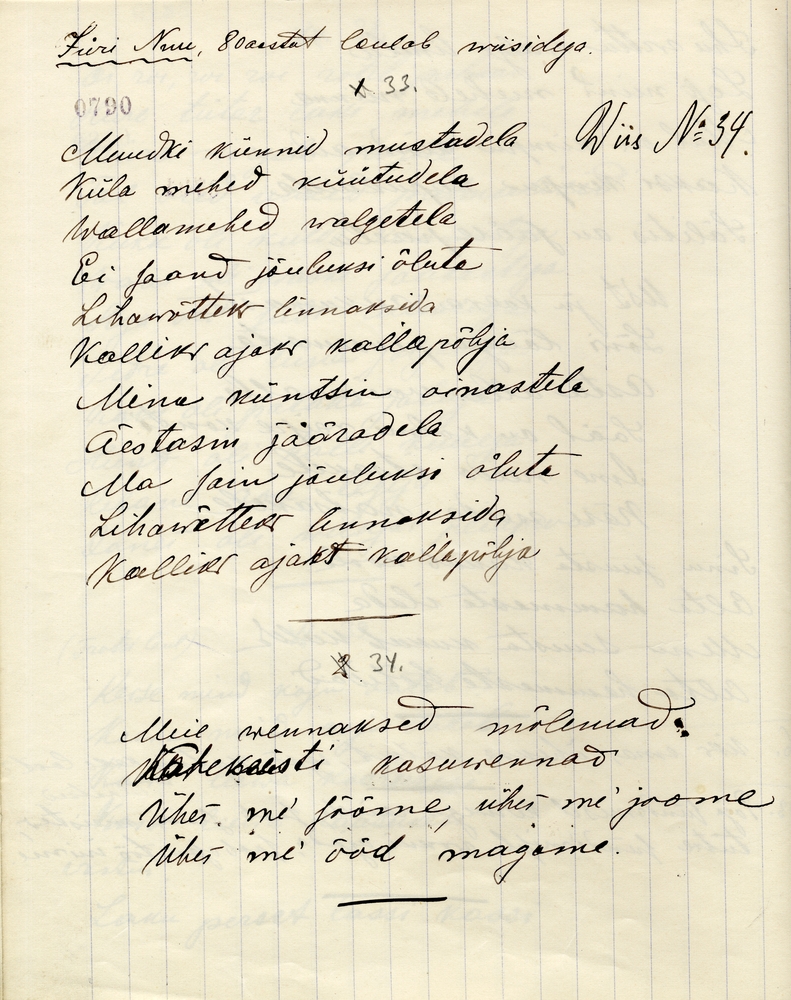 Jüri Nuu, 80 aastat laulab wiisidega.
33.
0790
Wiis № 34.
Muudki künnid mustadela
Küla mehed küütudela
Wallamehed walgetela
Ei saand jõuluksi õluta
Lihawõtteks linnaksida
Kalliks ajaks kallapõhja
Mina küntsin oinastela
Äestasin jääradela
Ma sain jõuluksi õluta
Lihawõtteks linnaksida
Kalliks ajaks kallapõhja
34.
Meie wennaksed mõlemad
kasuwennad
Ühes me' sööme, ühes me' joome
Ühes me' ööd magame.